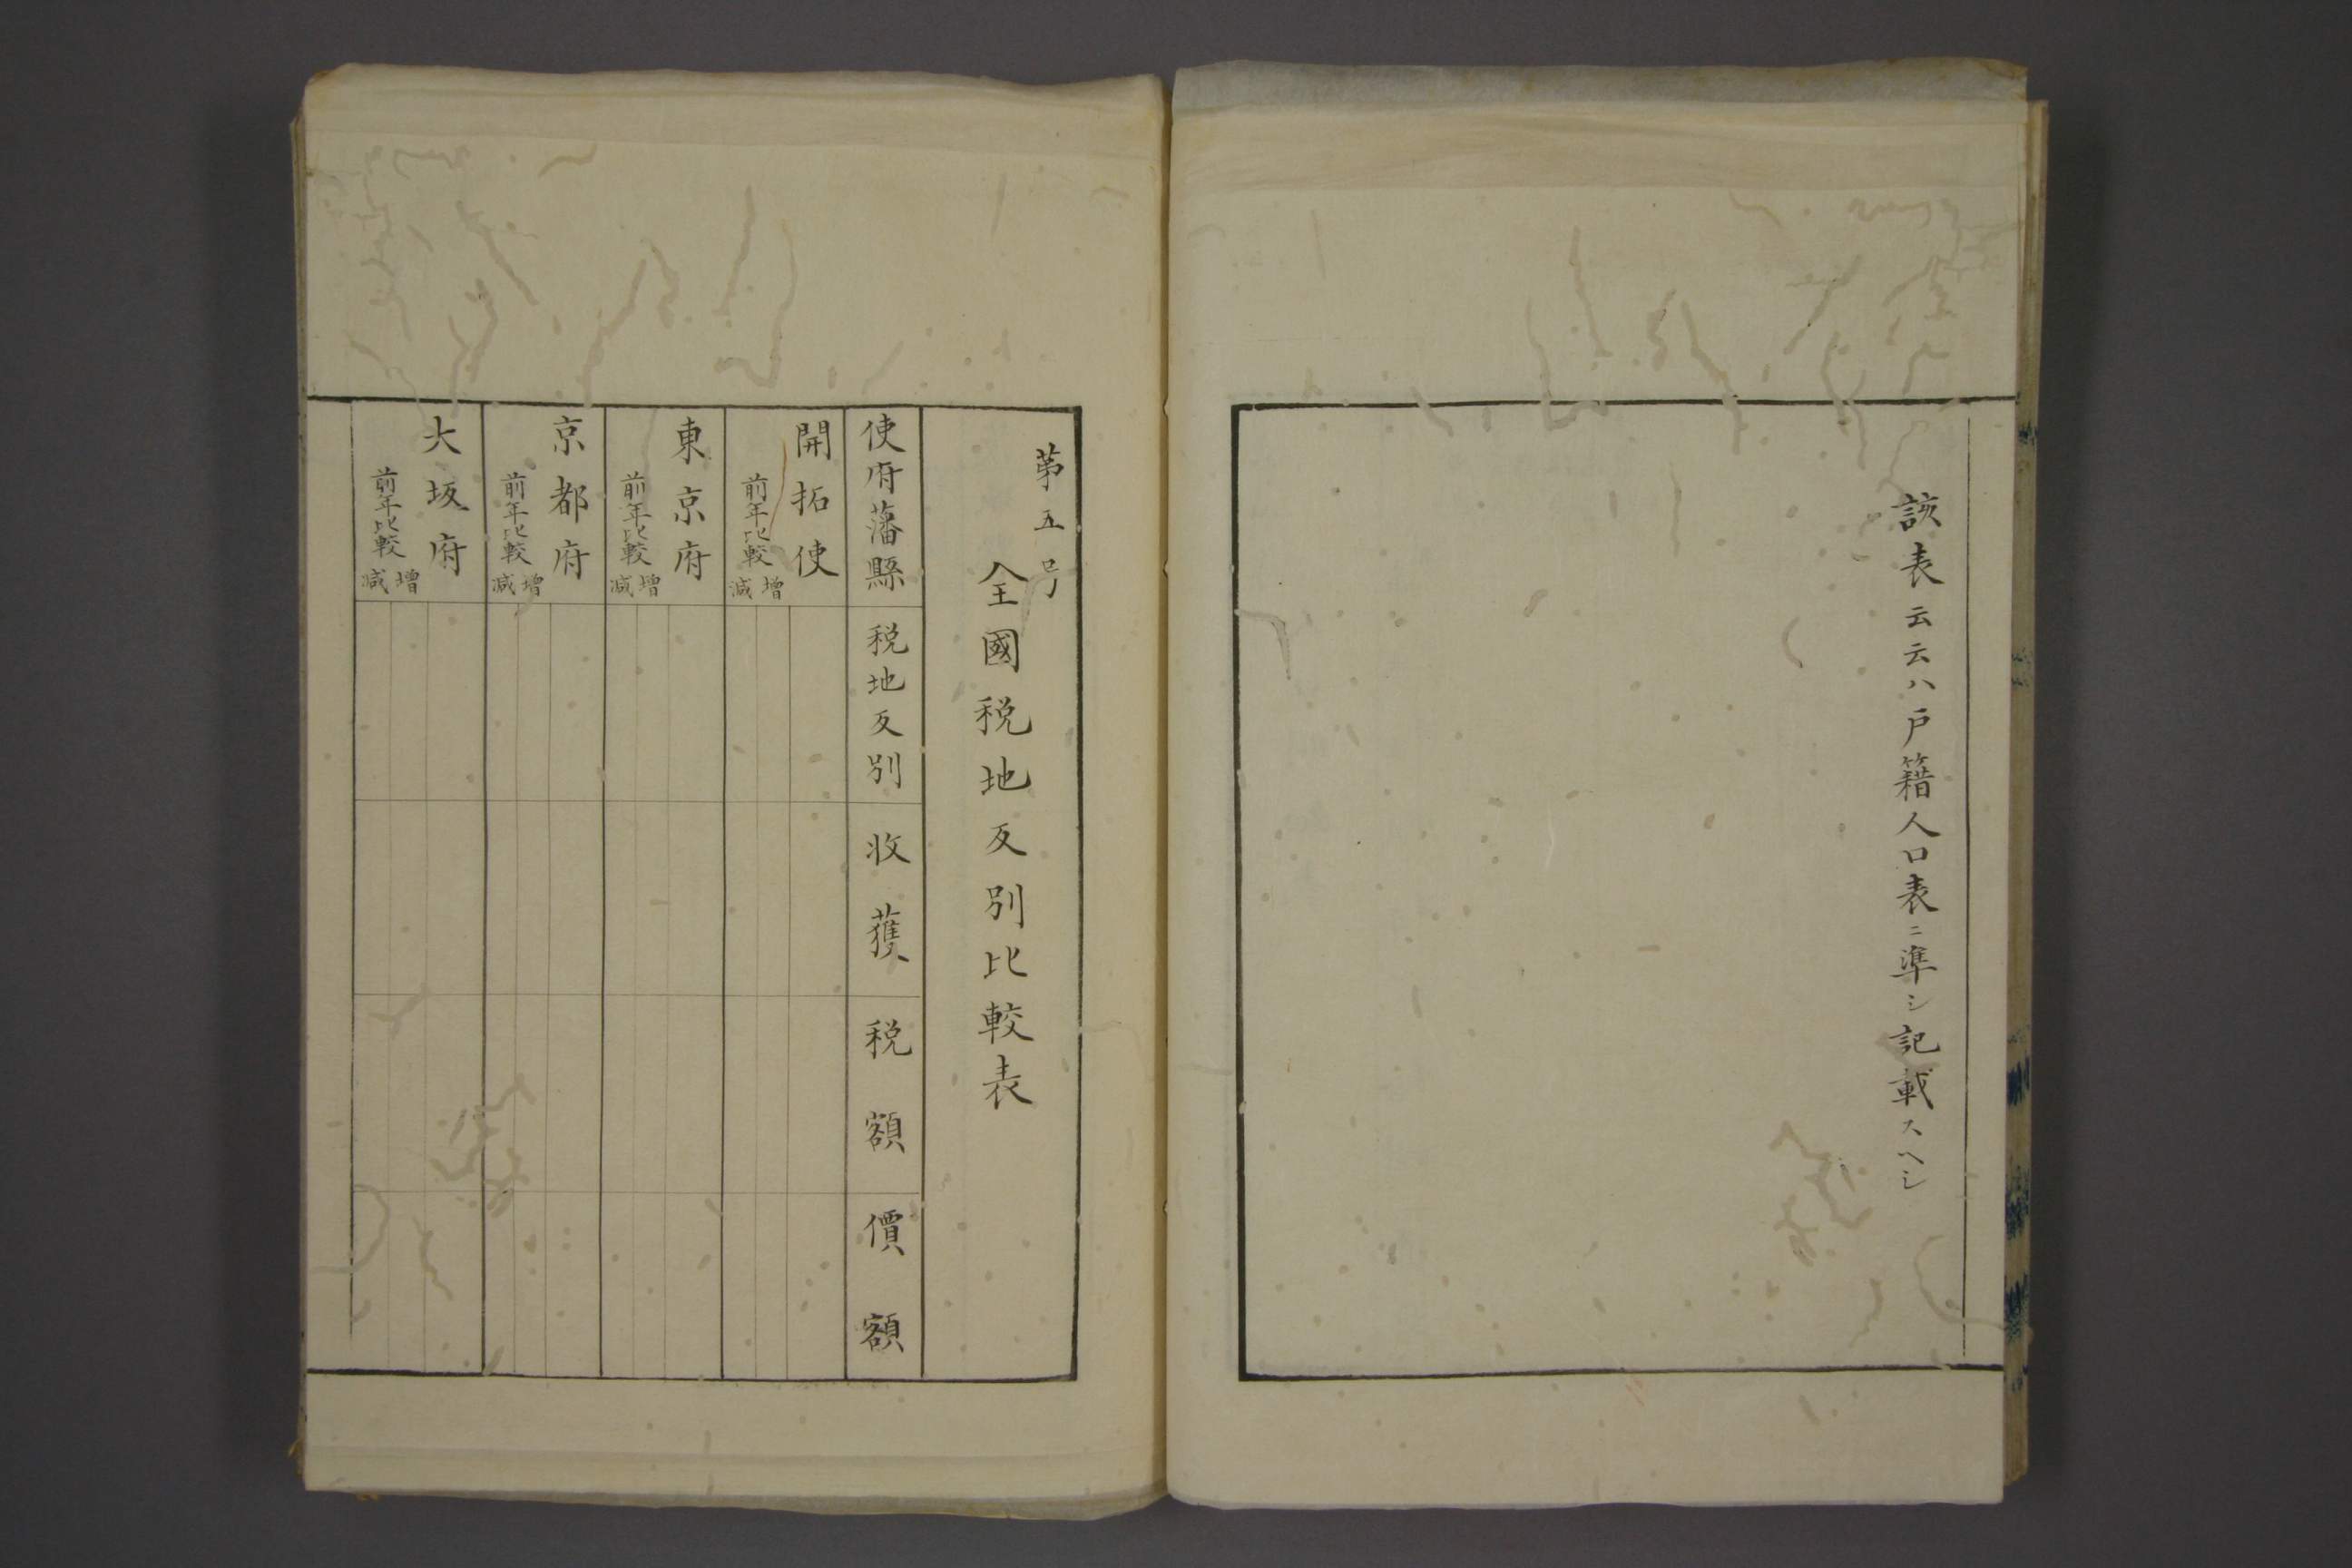 該表云云ハ戸籍人口表ニ準シ記載スヘシ
第五号
全國税地反別比較表
使府藩縣
税地反別
收獲
税額
價額
開拓使
前年比較
増
減
東京府
前年比較
増
減
京都府
前年比較
増
減
大坂府
前年比較
増
減